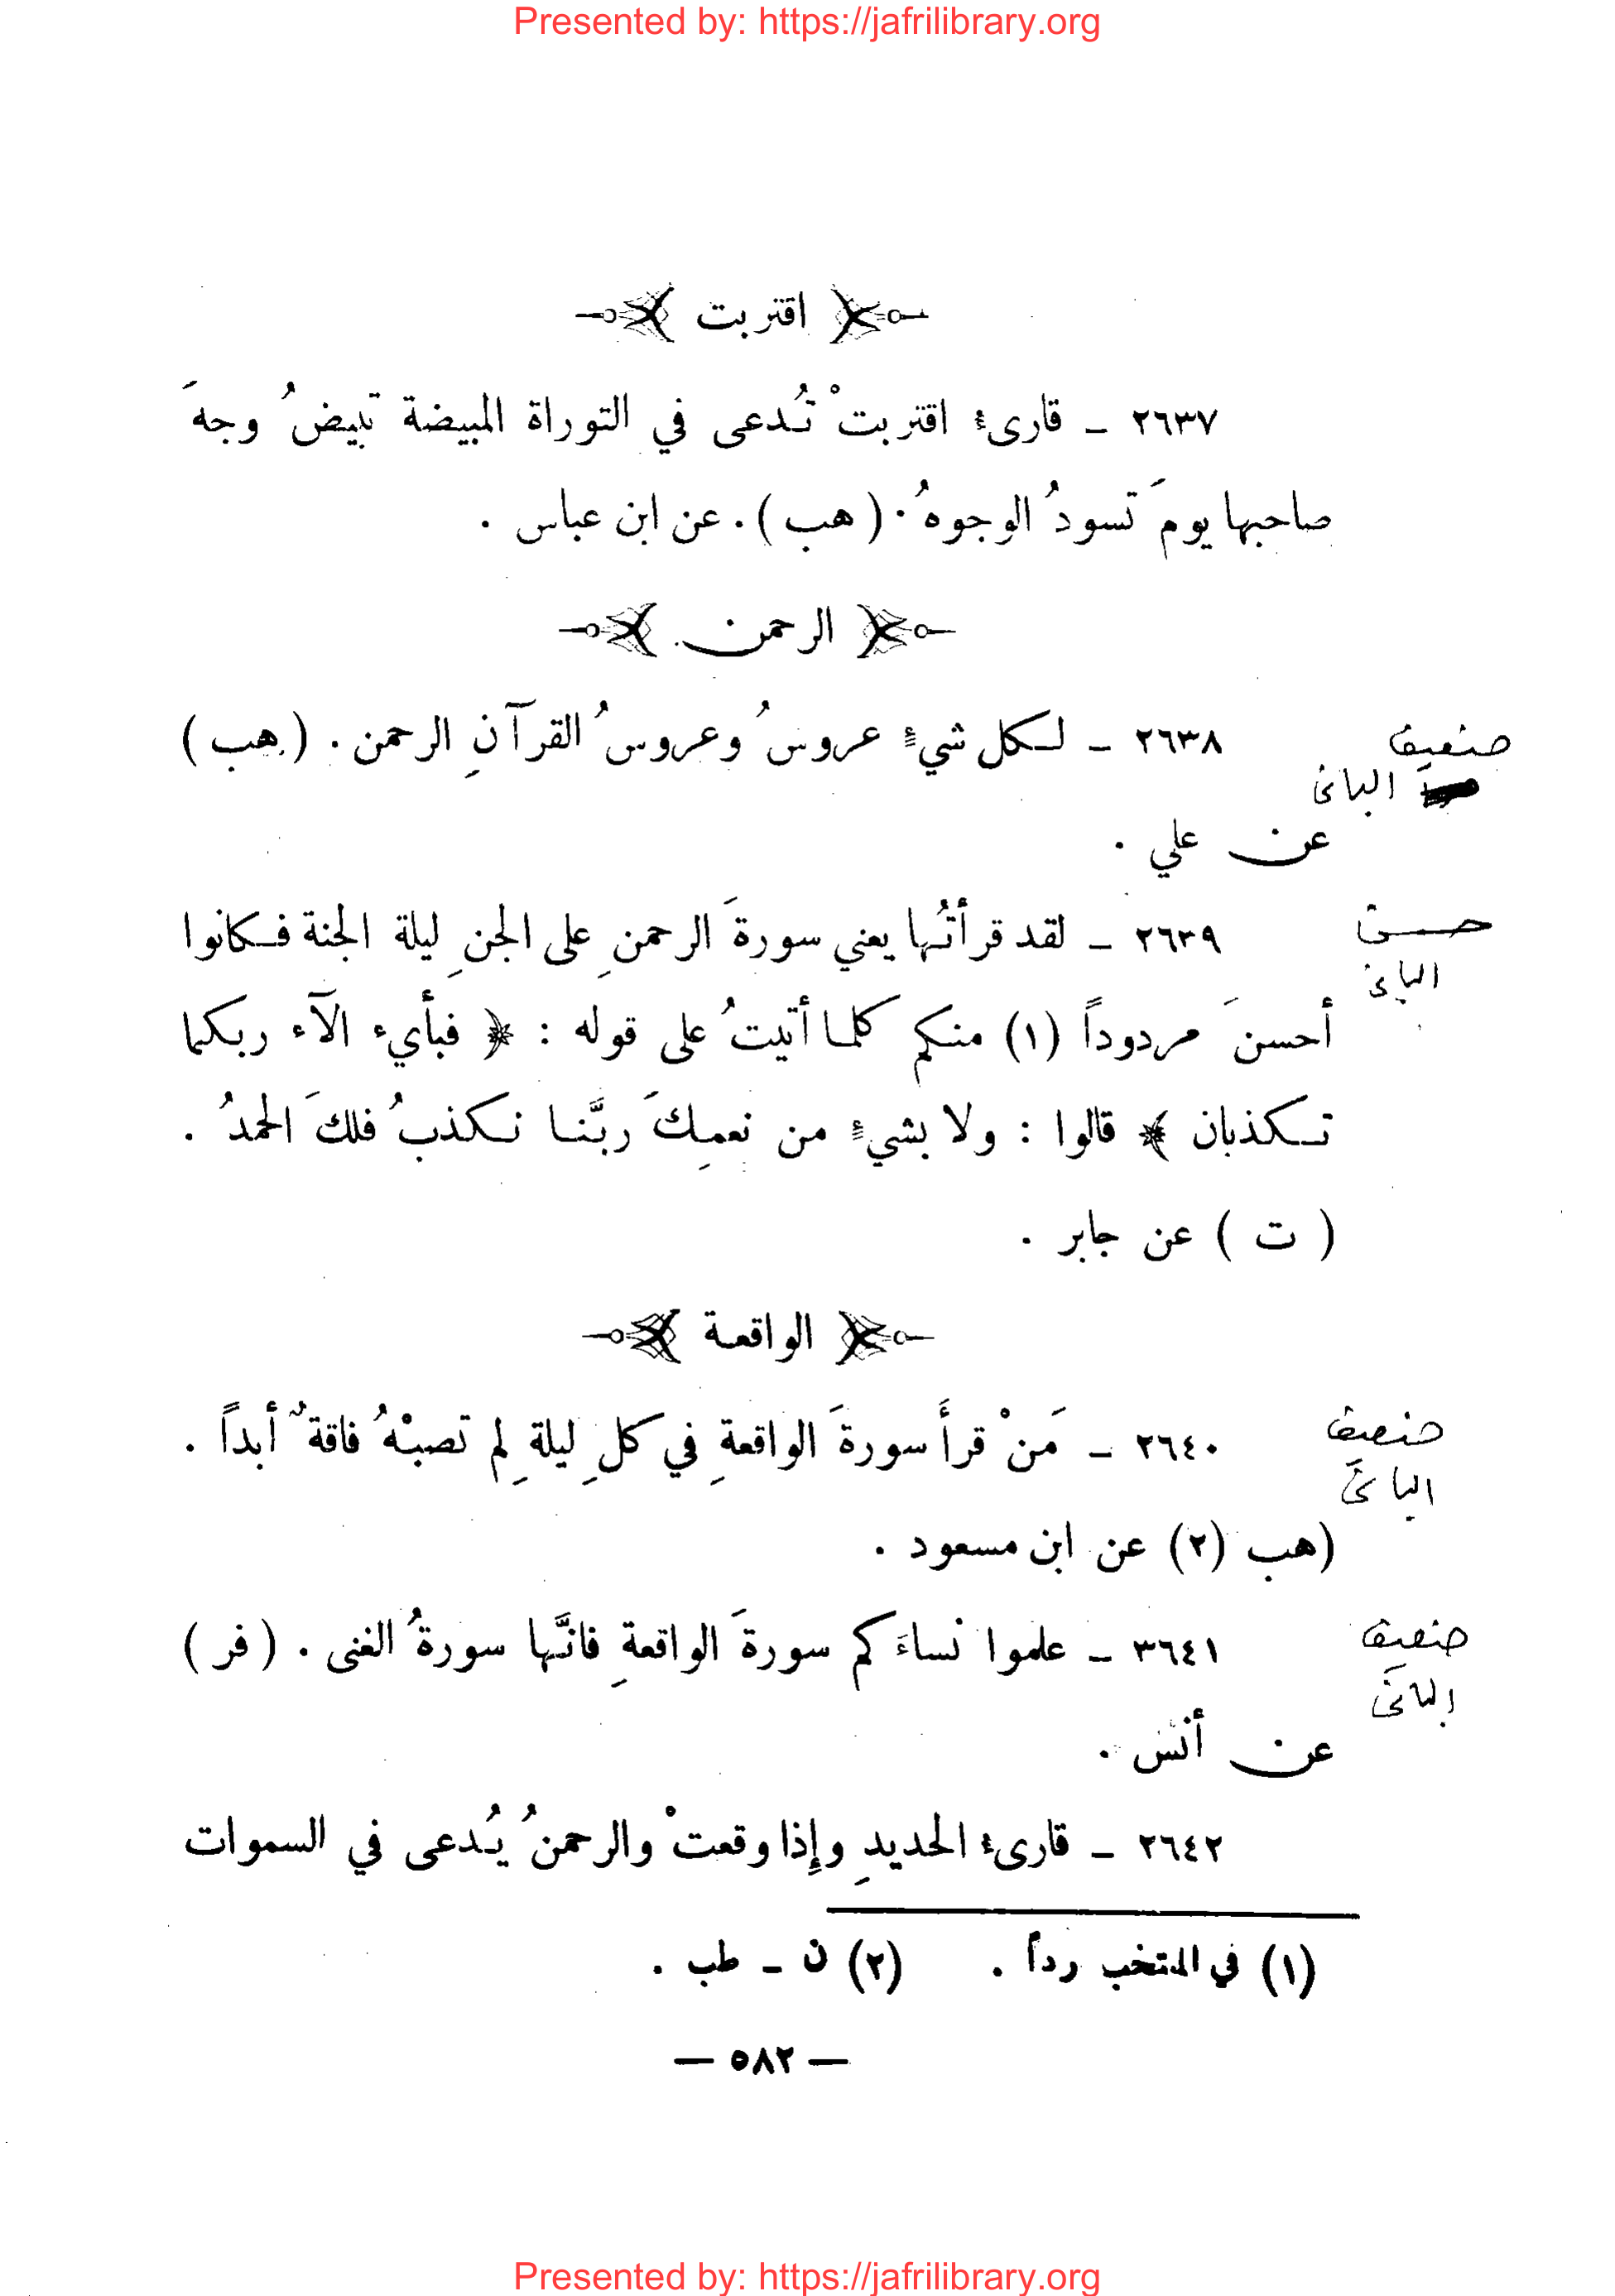 Presented by: https://jafrilibrary.org
اقتربت
٢٦٣٧ ـ قارىء اقتربتْ تُدعى في التوراة المبيضة تبيضُ وجهَ
صاحبها يومَ تسودُ الوجوهُ . ( هب ) . عن ابن عباس .
الرحمن
٢٦٣٨ ـ لكل شيءٍ عروسُ وعروسُ القرآنِ الرحمن . ( هب )
ضعيف
البانى
عن علي .
٢٦٣٩ ـ لقد قرأتُها يعني سورةَ الرحمنِ على الجنِ ليلة الجنة فكانوا
حسن
البانى
أحسنَ مردوداً (١) منكم كلما أتيتُ على قوله : ﴿ فبأيء الآء ربكما
تكذبان ﴾ قالوا : ولا بشيءٍ من نعمِكَ ربَّنا نكذبُ فلكَ الحمدُ .
( ت ) عن جابر .
الواقعة
٢٦٤٠ ـ مَنْ قرأَ سورةَ الواقعةِ في كلِ ليلةِ لم تصبْهُ فاقةٌ أبداً .
ضعيف
البانى
(هب (٢) عن ابن مسعود .
٣٦٤١ ـ علموا نساءَكم سورةَ الواقعةِ فانَّها سورةُ الغنى . ( فر )
ضعيف
البانى
عن أنس .
٢٦٤٢ ـ قارىء الحديدِ وإِذا وقعتْ والرحمنُ يُدعى في السموات
(١) في المنتخب رداً . (٢) ن ـ طب .
— ٥٨٢ —
Presented by: https://jafrilibrary.org